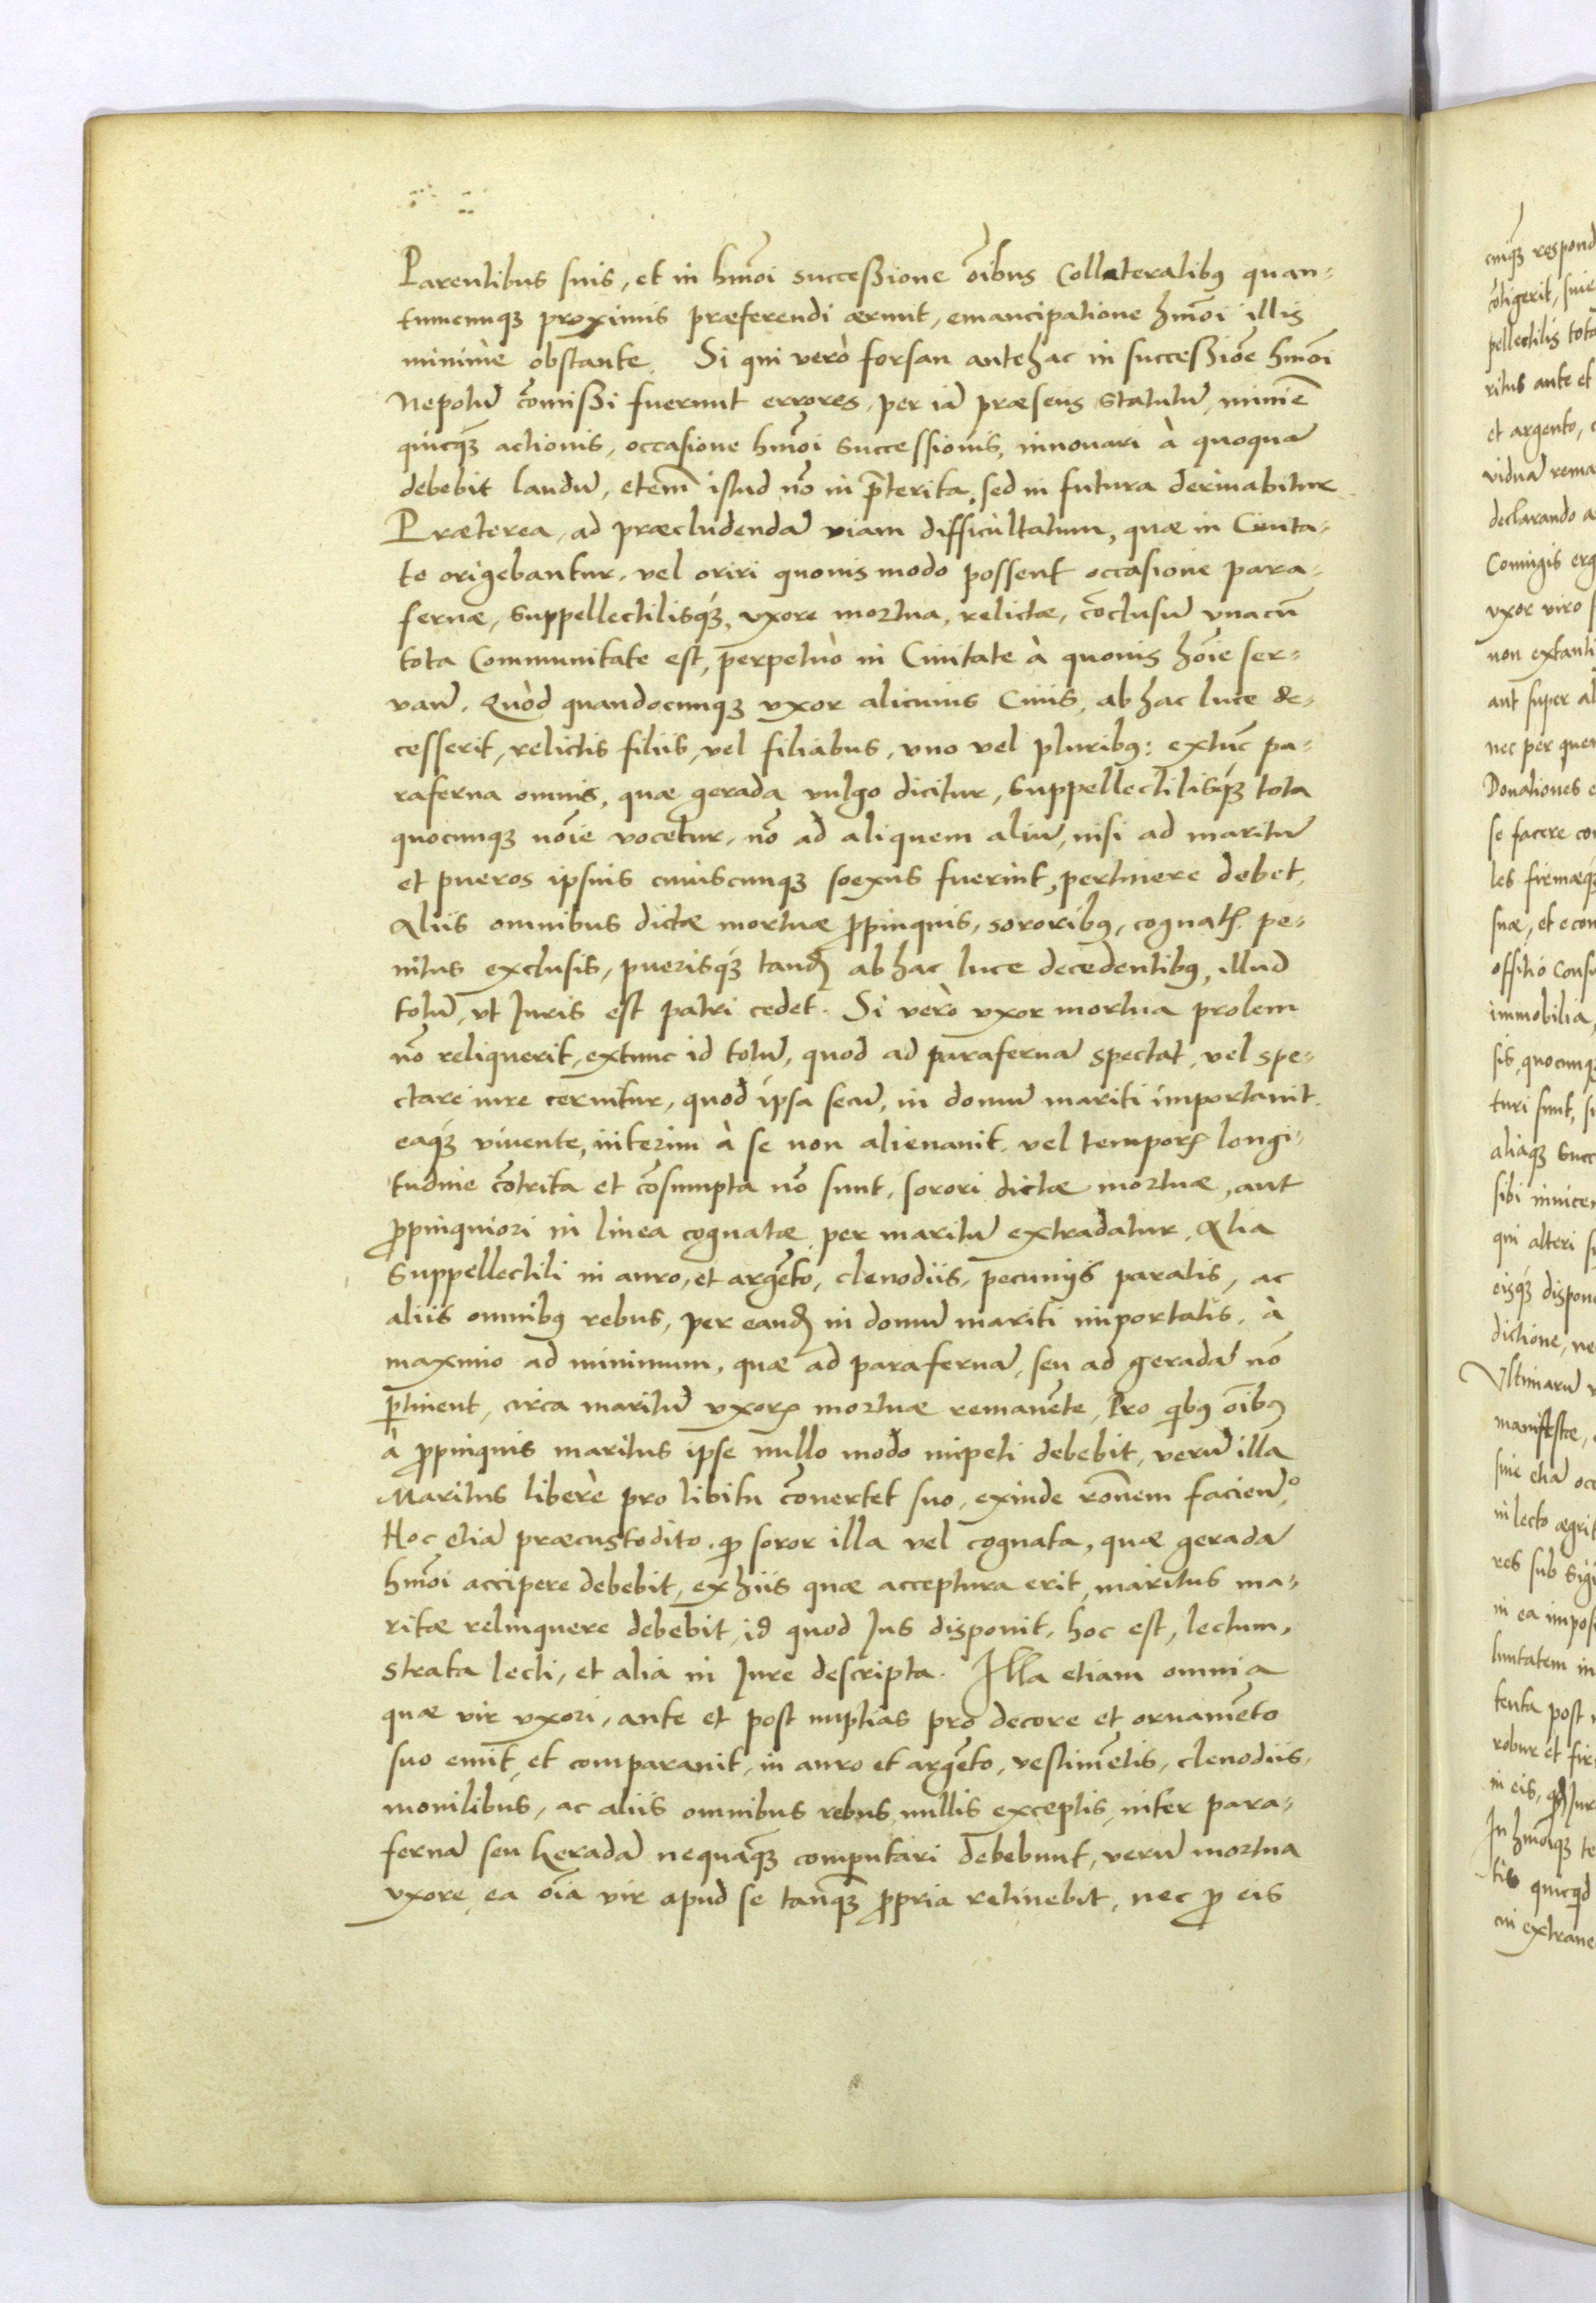 Parentibus suis, et in hmōi succeßione ōibus Collateralibꝰ quan-
tumcunqꝫ proximis præferendi ærunt, emancipatione hmōi illis
minimè obstante. Si qui verò forsan antehac in succeßiōe hmōi
Nepotū cōmißi fuerunt errores, per iā præsens Statutū, minīe
quicqꝫ actionis, occasione hmōi successionis, innouari à quoquā
debebit laudū, etem̄ istud nō in p̄terita, sed in futura deriuabitur
Præterea, ad præcludendā viam difficultatum, quæ in Ciuita-
te origebantur, vel oriri quouis modo possent occasione para-
fernæ, suppellectilisqꝫ, vxore mortua, relictæ, cōclusū vnacū
tota Communitate est, perpetuò in Ciuitate à quouis hoīe ser-
van̄. Quòd quandocunqꝫ vxor alicuius Ciuis, ab hac luce de-
cesserit, relictis filiis, vel filiabus, vno vel pluribꝰ: extūc pa-
raferna omnis, quæ gerada vulgo dicitur, Suppellectilisqꝫ tota
quocunqꝫ noīe vocetur, nō ad aliquem aliū, nisi ad maritū
et pueros ipsius cuiuscunqꝫ soexus fuerint, pertinere debet,
Aliis omnibus dictæ mortuæ ꝓpinquis, sororibꝰ, cognatꝭ pe-
nitus exclusis, puerisqꝫ tandꝫ ab hac luce decedentibꝰ, illud
totū, vt Juris est patri cedet. Si verò vxor mortua prolem
nō reliquerit, extunc id totū, quod ad parafernā spectat, vel spe-
ctare iure cernitur, quod ipsa secū, in domū mariti importauit
eaqꝫ viuente, interim à se non alienauit, vel temporꝭ longi-
tudine cōtrita et cōsumpta nō sunt, sorori dictæ mortuæ, aut
ꝓpinquiori in linea cognatæ per maritū extradatur, Alia
Suppellectili in auro, et argēto, clenodiis, pecunijs paratis, ac
aliis omnibꝰ rebus, per eandꝫ in domū mariti importatis, à
maximo ad minimum, quæ ad parafernā, seu ad geradā nō
ꝑtinent, circa maritū vxorꝭ mortuæ remanēte, Pro qibꝰ oībꝰ
à ꝓpinquis maritus ipse nullo modo impeti debebit, verū illa
Maritus liberè pro libitu cōuertet suo, exinde rōnem facien̄.º
Hoc etiā præcustodito, qꝫ soror illa vel cognata, quæ geradā
hmōi accipere debebit, ex hiis quæ acceptura erit, maritus ma-
ritæ relinquere debebit, id quod Jus disponit, hoc est, lectum,
strata lecti, et alia in Jure descripta. Illa etiam omnia
quæ vir vxori, ante et post nuptias pro decore et ornamēto
suo emit, et comparauit, in auro et argēto, vestimētis, clenodiis,
monilibus, ac aliis omnibus rebus nullis exceptis, inter para-
fernā seu heradā nequaqꝫ computari debebunt, verū mortua
vxore ea oīa vir apud se tanqꝫ ꝓpria retinebit, nec ꝓ eis